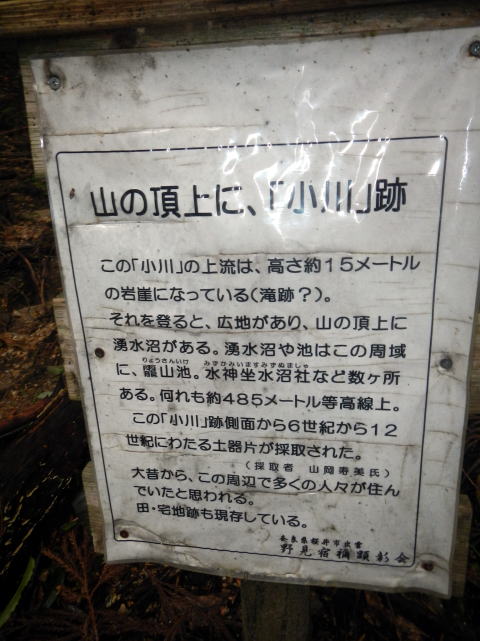 山の頂上に、「小川」跡
この「小川」の上流は、高さ約15メートル
の岩崖になっている(滝跡?)。
それを登ると、広地があり、山の頂上に
湧水沼がある。湧水沼や池はこの周域
りょうさんいけ みずかみいますみずぬましゃ
に、龗山池。水神坐水沼社など数ヶ所
ある。何れも約485メートル等高線上。
この「小川」跡側面から6世紀から12
世紀にわたる土器片が採取された。
(採取者 山岡寿美氏)
大昔から、この周辺で多くの人々が住ん
でいたと思われる。
田・宅地跡も現存している。
奈良県桜井市出雲
野見宿禰顕彰会